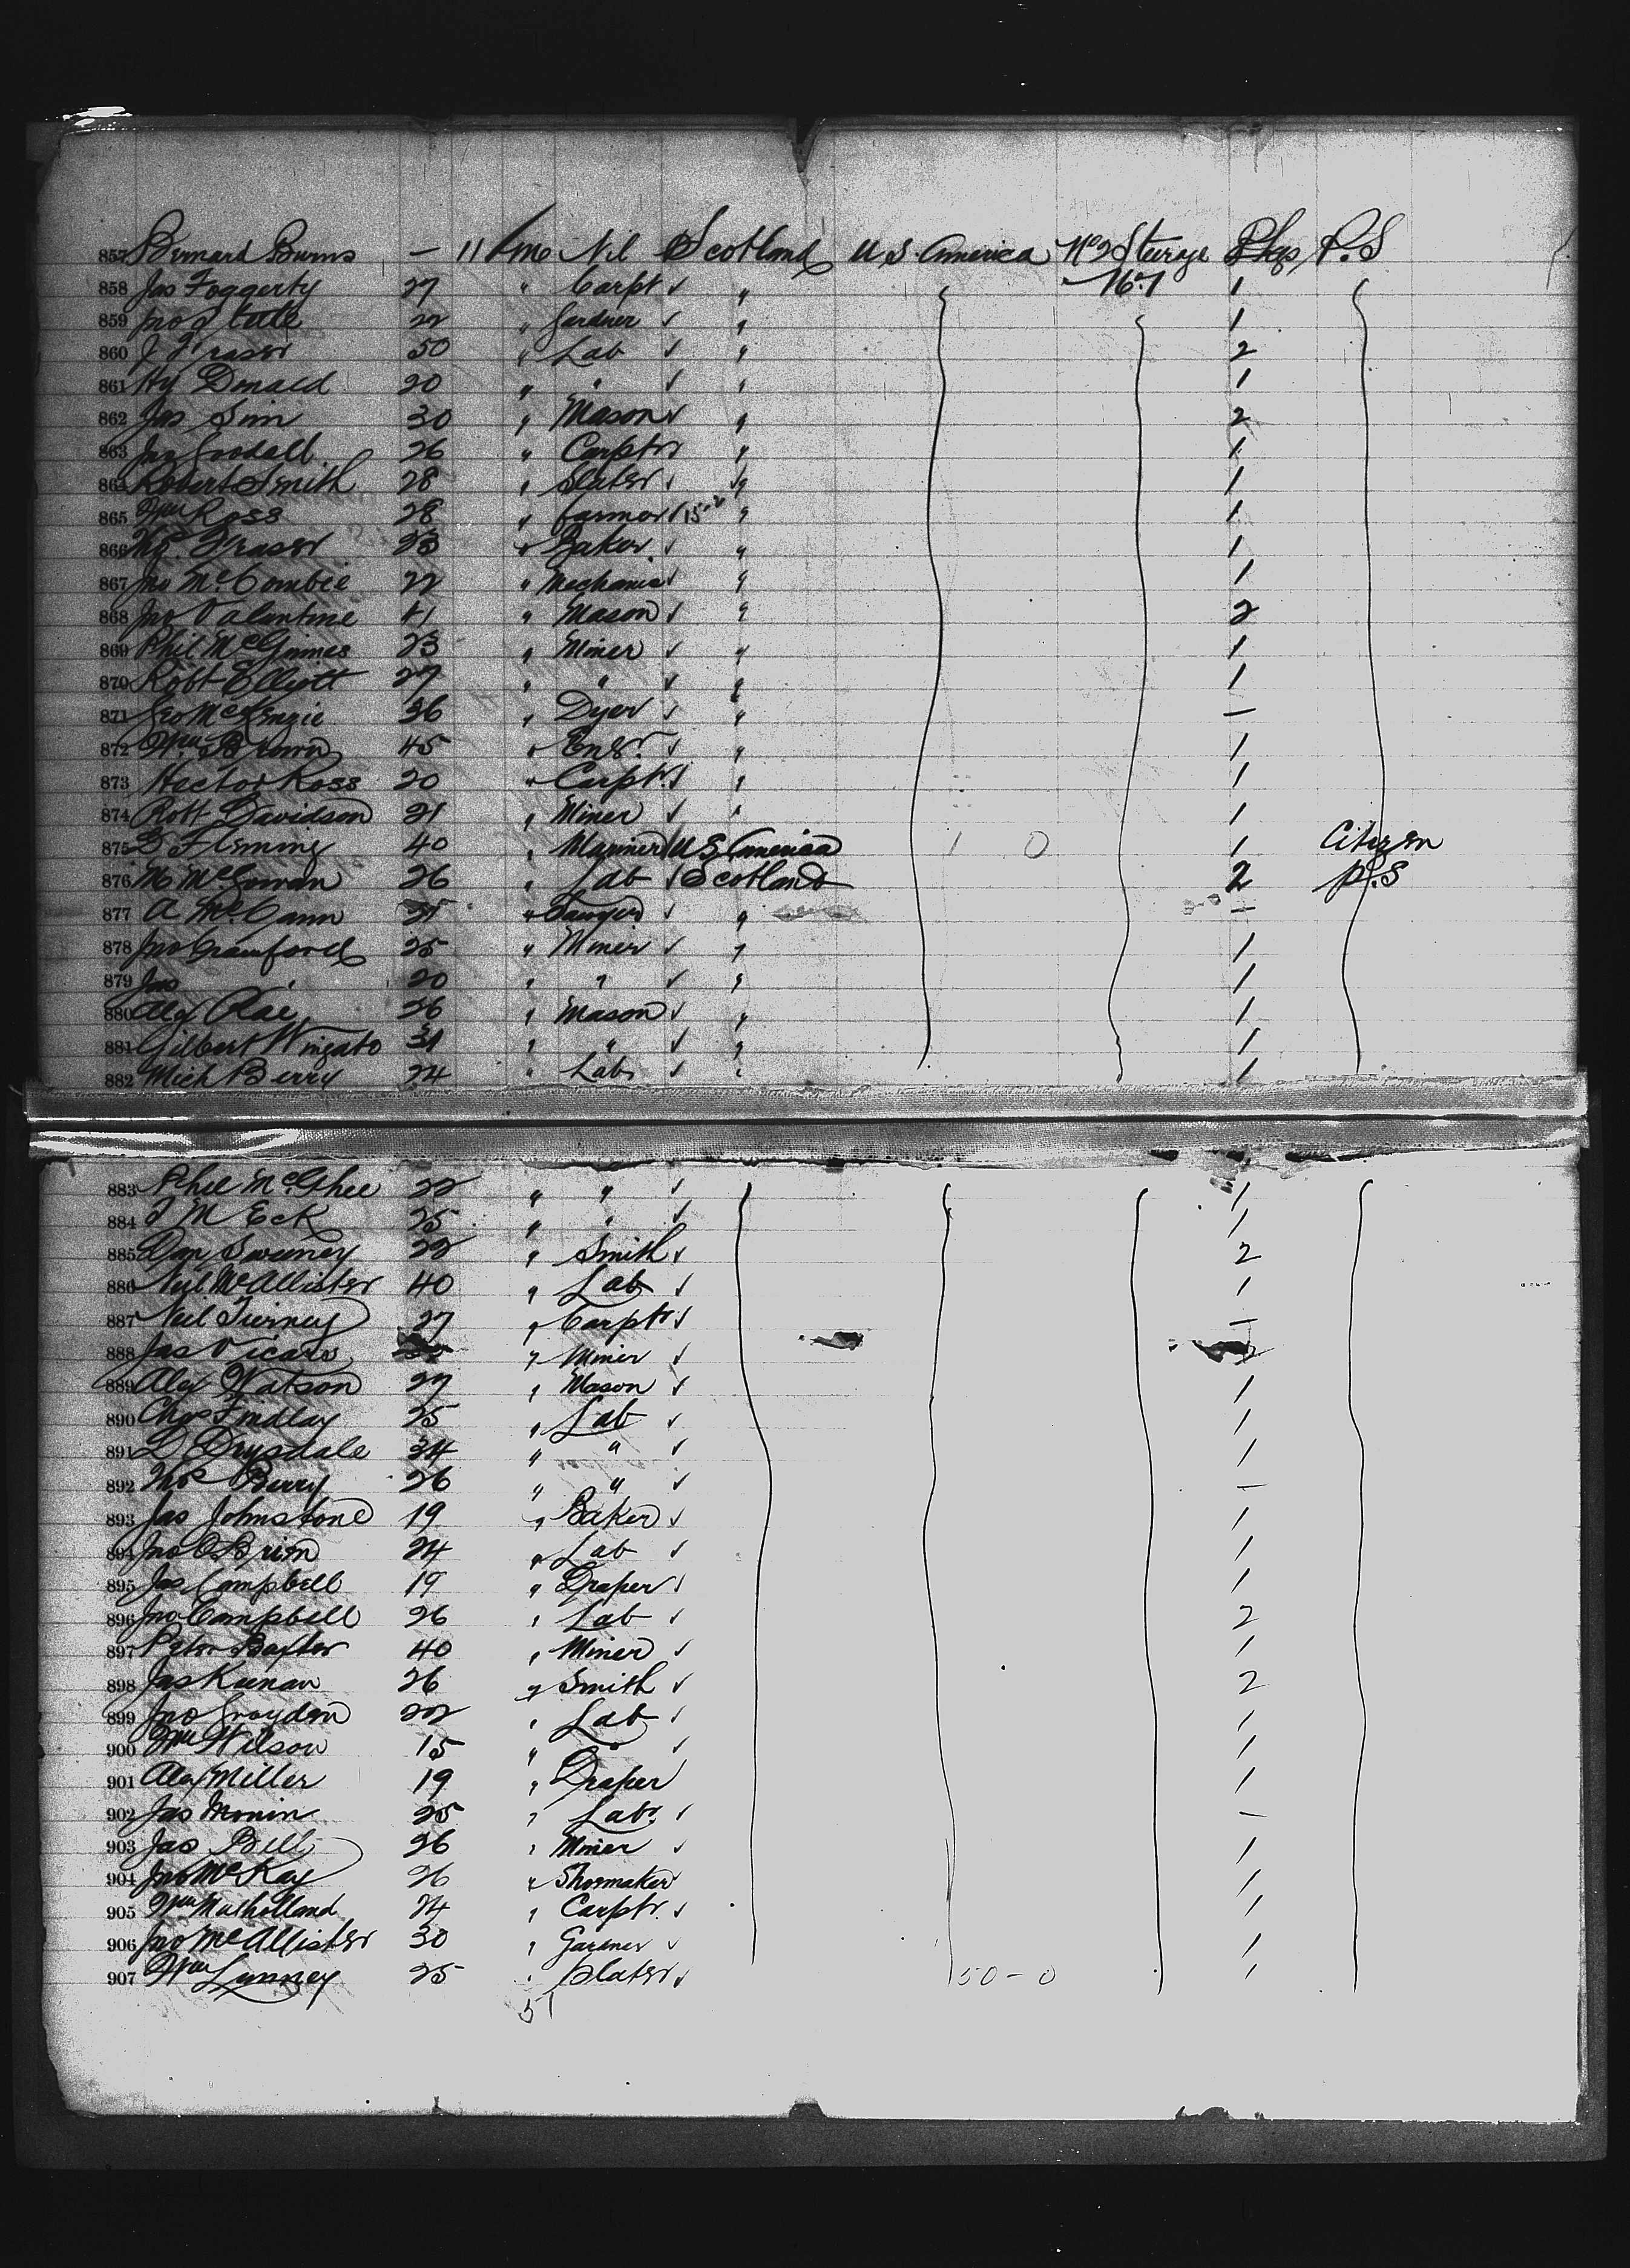 857 Bernard Burns — 11 m Nil Scotland U S America No 2 Steerage Pkgs P.S
858 Jas Foggerty 27 " Carpt ✓ " 167 1
859 Jno 22 " Gardner ✓ " 1
860 J Fraser 50 " Lab ✓ " 2
861 Hy Donald 20 " " ✓ " 1
862 Jas Sim 30 " Mason ✓ " 2
863 Jno Goodall 26 " Carptr ✓ " 1
864 Robert Smith 28 " Slater ✓ " 1
865 Wm Ross 28 " Farmer ✓ " 1
866 Fraser 23 " Baker ✓ " 1
867 Jno McCombie 22 " Mechanic ✓ " 1
868 Jno Valentine 41 " Mason ✓ " 2
869 Phil McGinnes 23 " Miner ✓ " 1
870 Robt Elliott 27 " " ✓ " 1
871 Geo McKenzie 36 " Dyer ✓ " —
872 Wm Brown 45 " Engr. ✓ " 1
873 Hector Ross 20 " Carptr ✓ " 1
874 Robt Davidson 21 " Miner ✓ " 1
875 Fleming 40 " Mariner U S America 1 0 1 Citizen
876 M McGowan 26 " Lab ✓ Scotland 2 P.S
877 A McCann 21 " Sawyer ✓ " —
878 Jno Crawford 25 " Miner ✓ " 1
879 Jas " 20 " " ✓ " 1
880 Alex Rae 26 " Mason ✓ " 1
881 Gilbert Wingate 31 " " ✓ " 1
882 Mich Berry 24 " Labr ✓ " 1
883 Phil McGhee 22 " " ✓ 1
884 J M Eck 25 " " ✓ 1
885 Dan Sweeney 22 " Smith ✓ 2
886 Neil McAllister 40 " Lab ✓ 1
887 Neil Tierney 27 " Carptr ✓ —
888 Jas Vicars " Miner ✓ 2
889 Alex Watson 27 " Mason ✓ 1
890 Chas Findlay 25 " Lab ✓ 1
891 D Drysdale 34 " " ✓ 1
892 Thos Berry 26 " " ✓ —
893 Jas Johnstone 19 " Baker ✓ 1
894 Jno O'Brien 24 " Lab ✓ 1
895 Jas Campbell 19 " Draper ✓ 1
896 Jno Campbell 26 " Lab ✓ 2
897 Peter Baxter 40 " Miner ✓ 1
898 Jas Keenan 26 " Smith ✓ 2
899 Jno Graydon 22 " Lab ✓ 1
900 Wm Wilson 15 " " ✓ 1
901 Alex Miller 19 " Draper 1
902 Jas Monin 25 " Labr ✓ —
903 Jas Bell 26 " Miner ✓ 1
904 Jno McKay 26 " Shoemaker 1
905 Wm Mulholland 24 " Carptr. ✓ 1
906 Jno McAllister 30 " Gardner ✓ 1
907 Wm Lunney 25 " Slater ✓ 50 - 0 1
51